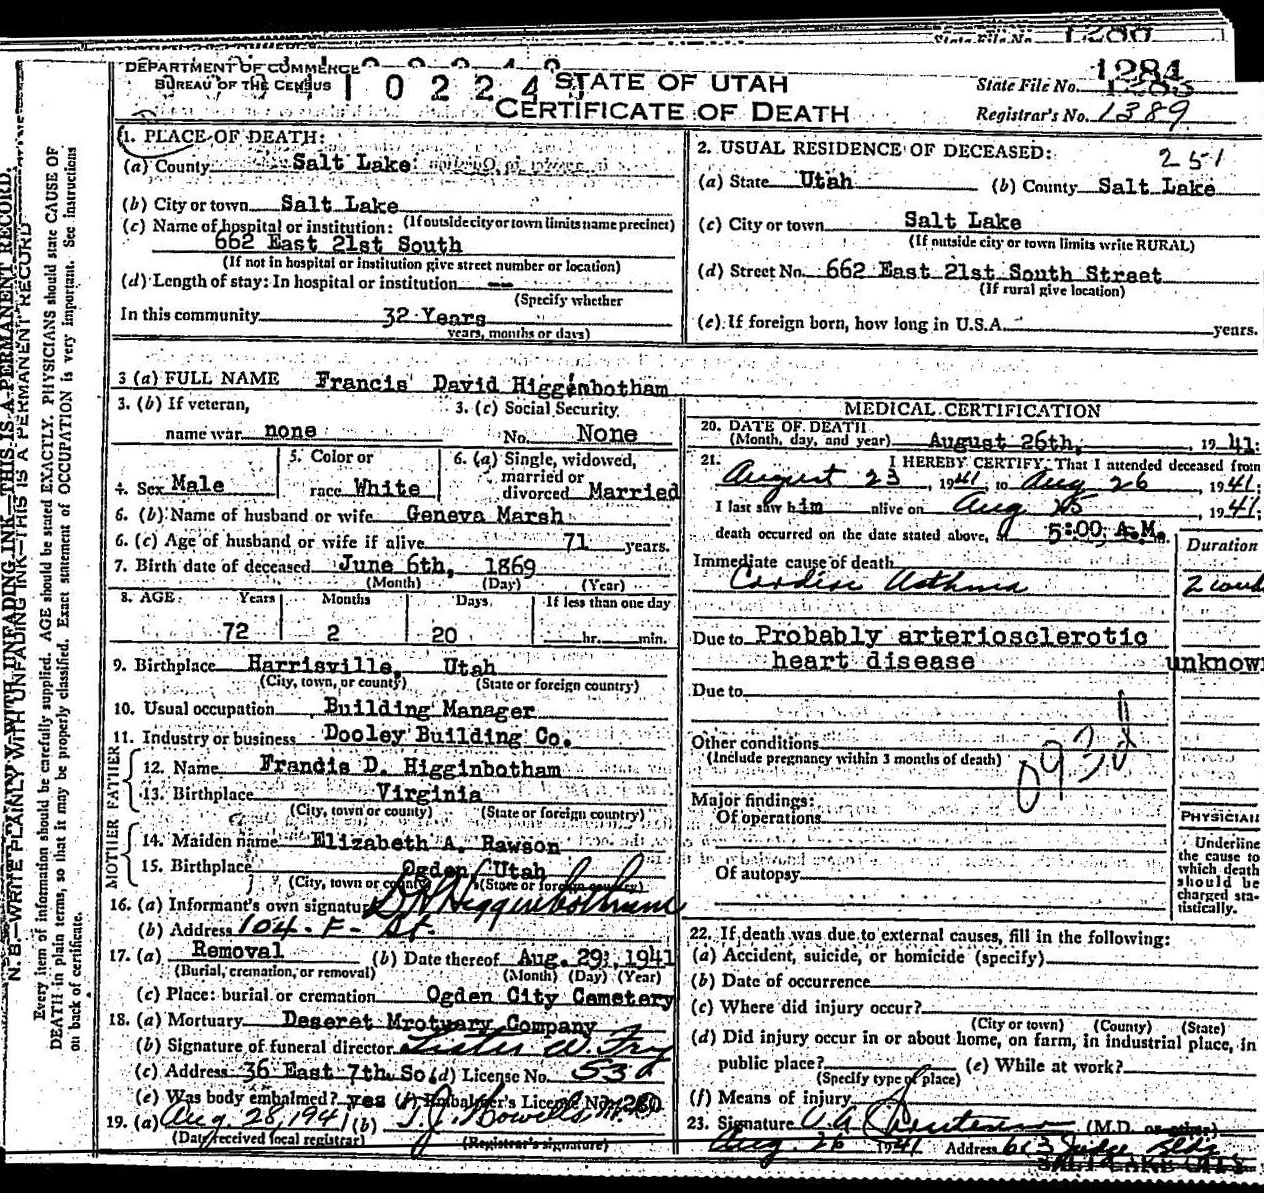 State File No. 1280
DEPARTMENT OF COMMERCE
BUREAU OF THE CENSUS
STATE OF UTAH
CERTIFICATE OF DEATH
State File No. 1284
Registrar's No. 1389
1. PLACE OF DEATH:
(a) County Salt Lake
(b) City or town Salt Lake
(c) Name of hospital or institution: (If outside city or town limits name precinct)
662 East 21st South
(If not in hospital or institution give street number or location)
(d) Length of stay: In hospital or institution --
(Specify whether
In this community 32 Years
years, months or days)
2. USUAL RESIDENCE OF DECEASED: 251
(a) State Utah (b) County Salt Lake
(c) City or town Salt Lake
(If outside city or town limits write RURAL)
(d) Street No. 662 East 21st South Street
(If rural give location)
(e) If foreign born, how long in U.S.A. years.
3 (a) FULL NAME Francis David Higginbotham
3. (b) If veteran,
name war none
3. (c) Social Security
No. None
4. Sex Male
5. Color or
race White
6. (a) Single, widowed,
married or
divorced Married
6. (b) Name of husband or wife Geneva Marsh
6. (c) Age of husband or wife if alive 71 years.
7. Birth date of deceased June 6th, 1869
(Month) (Day) (Year)
8. AGE Years Months Days If less than one day
72 2 20 hr. min.
9. Birthplace Harrisville, Utah
(City, town, or county) (State or foreign country)
10. Usual occupation Building Manager
11. Industry or business Dooley Building Co.
FATHER
12. Name Francis D. Higginbotham
13. Birthplace Virginia
(City, town or county) (State or foreign country)
MOTHER
14. Maiden name Elizabeth A. Rawson
15. Birthplace Ogden, Utah
(City, town or county) (State or foreign country)
16. (a) Informant's own signature D H Higginbotham
(b) Address 104 - F - St.
17. (a) Removal (b) Date thereof Aug. 29, 1941
(Burial, cremation, or removal) (Month) (Day) (Year)
(c) Place: burial or cremation Ogden City Cemetery
18. (a) Mortuary Deseret Mrotuary Company
(b) Signature of funeral director W. Fry
(c) Address 36 East 7th So. (d) License No. 530
(e) Was body embalmed? yes (f) Embalmer's License No. 280
19. (a) Aug. 28, 1941 (b) T. J. Howells M.D.
(Date received local registrar) (Registrar's signature)
MEDICAL CERTIFICATION
20. DATE OF DEATH
(Month, day, and year) August 26th, 1941
21. I HEREBY CERTIFY, That I attended deceased from
August 23, 1941, to Aug 26, 1941
I last saw him alive on Aug 25, 1941
death occurred on the date stated above, at 5:00 A.M.
Duration
Immediate cause of death
Cardiac Asthma 2 weeks
Due to Probably arteriosclerotic
heart disease unknown
Due to
Other conditions
(Include pregnancy within 3 months of death)
093d
Major findings:
Of operations
Of autopsy
PHYSICIAN
Underline
the cause to
which death
should be
charged sta-
tistically.
22. If death was due to external causes, fill in the following:
(a) Accident, suicide, or homicide (specify)
(b) Date of occurrence
(c) Where did injury occur?
(City or town) (County) (State)
(d) Did injury occur in or about home, on farm, in industrial place, in
public place? (e) While at work?
(Specify type of place)
(f) Means of injury
23. Signature (M.D. or other)
Aug. 26 1941 Address 613 Judge Bldg
SALT LAKE CITY
N.B.—WRITE PLAINLY WITH UNFADING INK—THIS IS A PERMANENT RECORD.
Every item of information should be carefully supplied. AGE should be stated EXACTLY. PHYSICIANS should state CAUSE OF
DEATH in plain terms, so that it may be properly classified. Exact statement of OCCUPATION is very important. See instructions
on back of certificate.